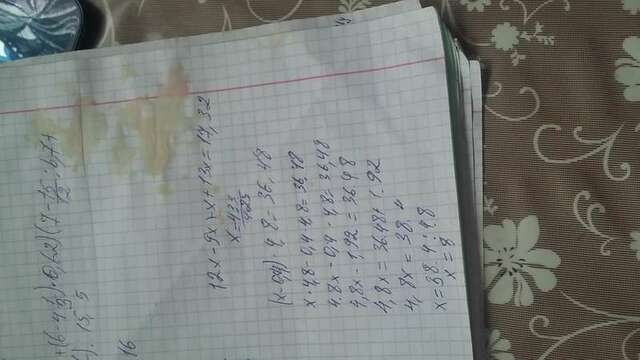 +(6-4 1/9)·0,62)(7-15/12:6,7+
). 15, 5
16
12x-9x+x+13x=17,32
x=433/425
(x-0,4)·4,8=36,48
x·4,8-0,4·4,8=36,48
4,8x-0,4·4,8=36,48
4,8x-1.92=36.48
4,8x=36.48+1.92
4,8x=38.4
x=38.4:4.8
x=8